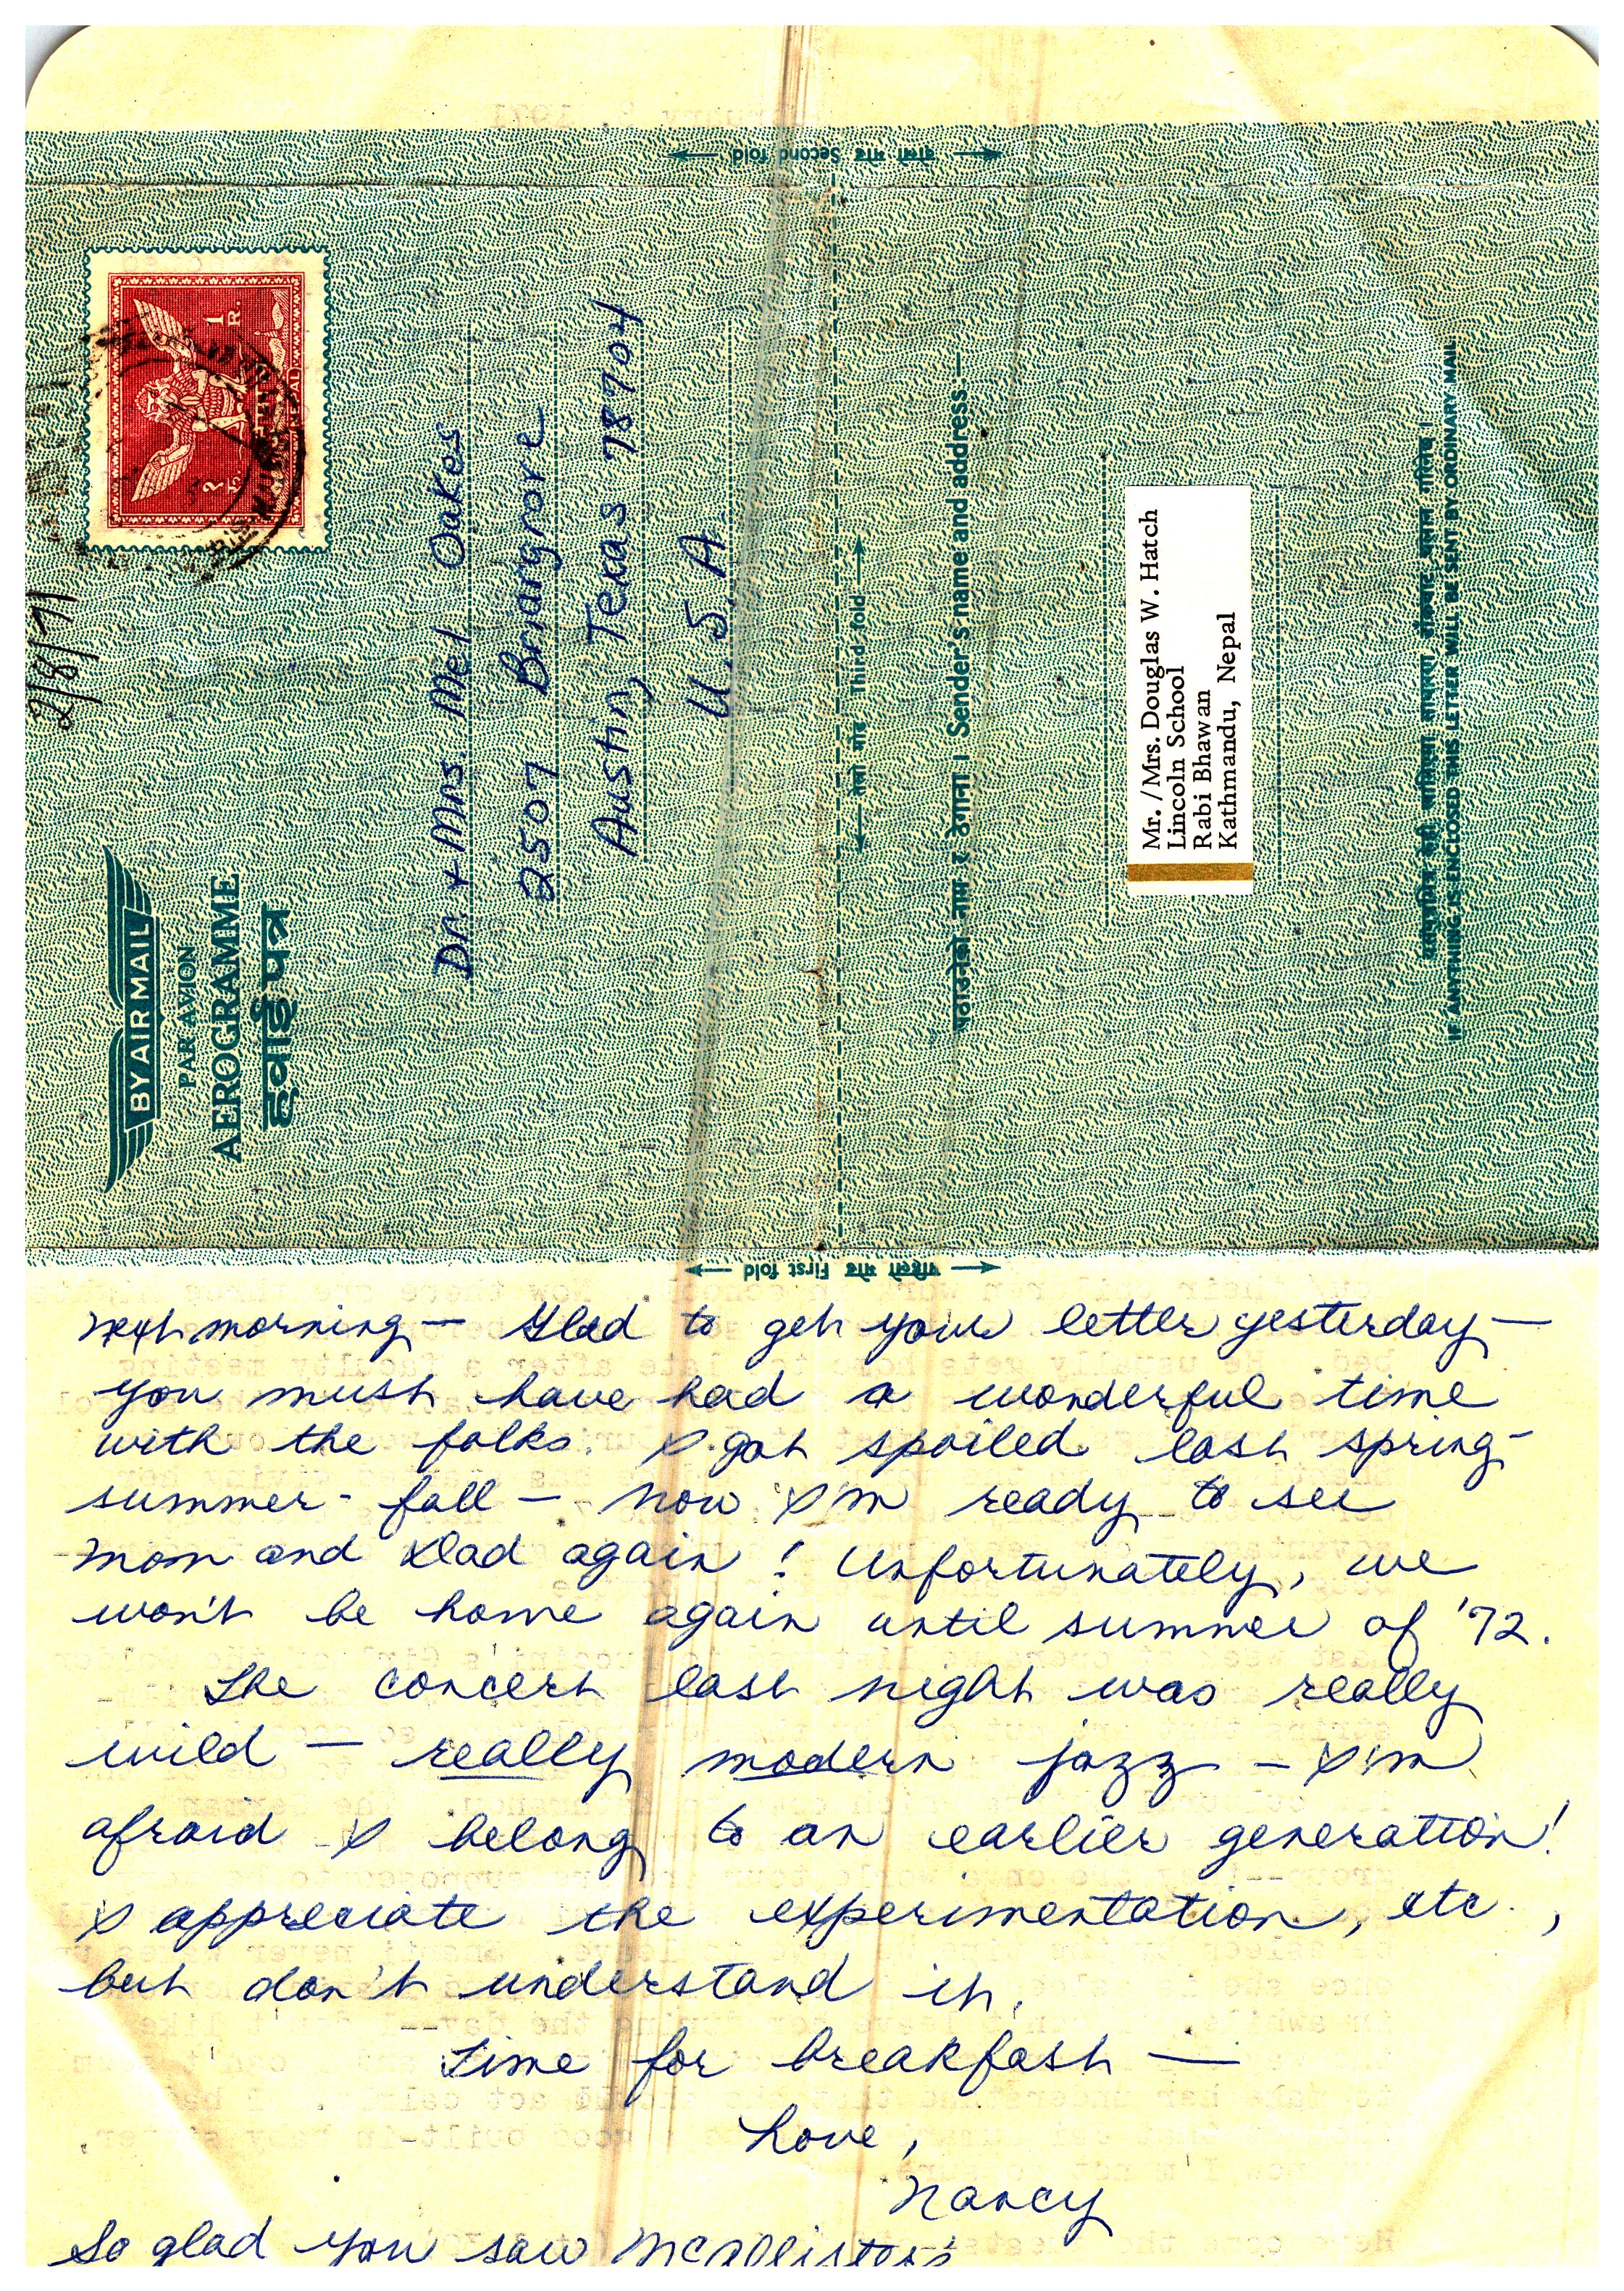 दोस्रो मोड Second fold
2/8/71
1
R.
BY AIR MAIL
PAR AVION
AEROGRAMME
हवाईपत्र
Dr. & Mrs. Mel Oakes
2507 Briargrove
Austin, Texas 78704
U. S. A.
तेस्रो मोड Third fold
पठाउनेको नाम र ठेगाना । Sender's name and address:—
Mr. /Mrs. Douglas W. Hatch
Lincoln School
Rabi Bhawan
Kathmandu, Nepal
IF ANYTHING IS ENCLOSED THIS LETTER WILL BE SENT BY ORDINARY MAIL
पहिलो मोड First fold
next morning — Glad to get your letter yesterday —
you must have had a wonderful time
with the folks. I got spoiled last spring-
summer - fall — now I'm ready to see
Mom and Dad again! Unfortunately, we
won't be home again until summer of '72.
The concert last night was really
wild — really modern jazz — I'm
afraid I belong to an earlier generation!
I appreciate the experimentation, etc.,
but don't understand it.
Time for breakfast —
Love,
Nancy
So glad you saw McAllisters